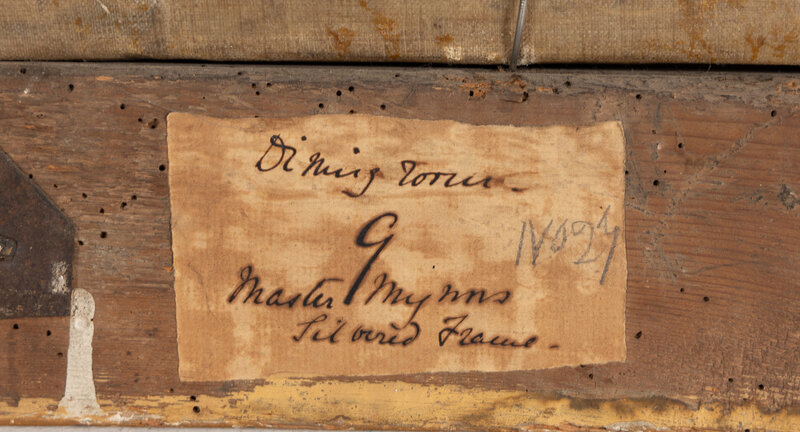 Dining room -
9
No 24
Master Mynors
Silvered Frame -